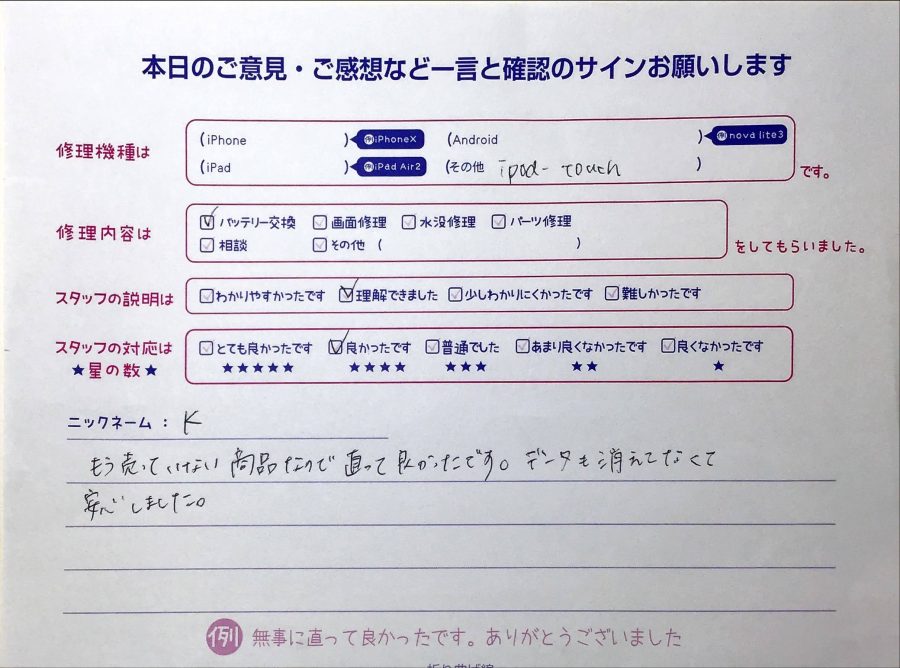 本日のご意見・ご感想など一言と確認のサインお願いします
修理機種は (iPhone ) 例iPhoneX (Android ) 例nova lite3
(iPad ) 例iPad Air2 (その他 ipod-touch ) です。
修理内容は バッテリー交換 画面修理 水没修理 パーツ修理
相談 その他 ( ) をしてもらいました。
スタッフの説明は わかりやすかったです 理解できました 少しわかりにくかったです 難しかったです
スタッフの対応は とても良かったです 良かったです 普通でした あまり良くなかったです 良くなかったです
★星の数★ ★★★★★ ★★★★ ★★★ ★★ ★
ニックネーム : K
もう売っていけない商品なので直って良かったです。データも消えてなくて
安心しました。
例 無事に直って良かったです。ありがとうございました